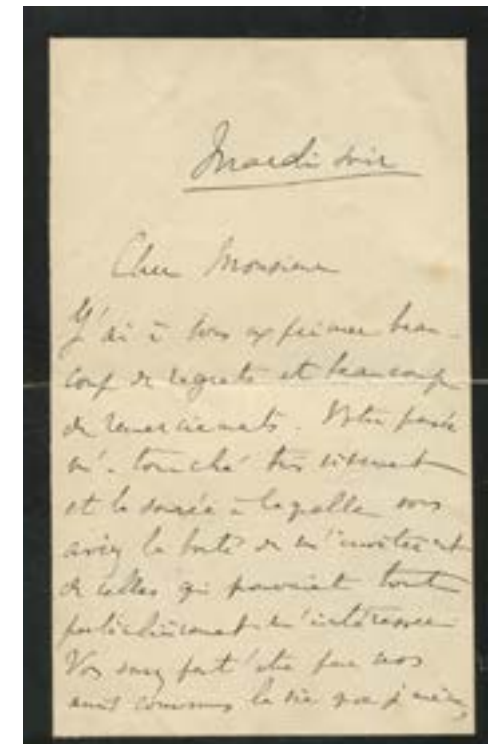 Mardi soir
Cher Monsieur
J'ai à vous exprimer beau-
coup de regrets et beaucoup
de remerciements. Votre pensée
m'a touché très vivement
et la soirée à laquelle vous
aviez la bonté de m'inviter est
de celles qui pouvaient tout
particulièrement m'intéresser
Vous savez peut'être par nos
amis communs la vie que je mène